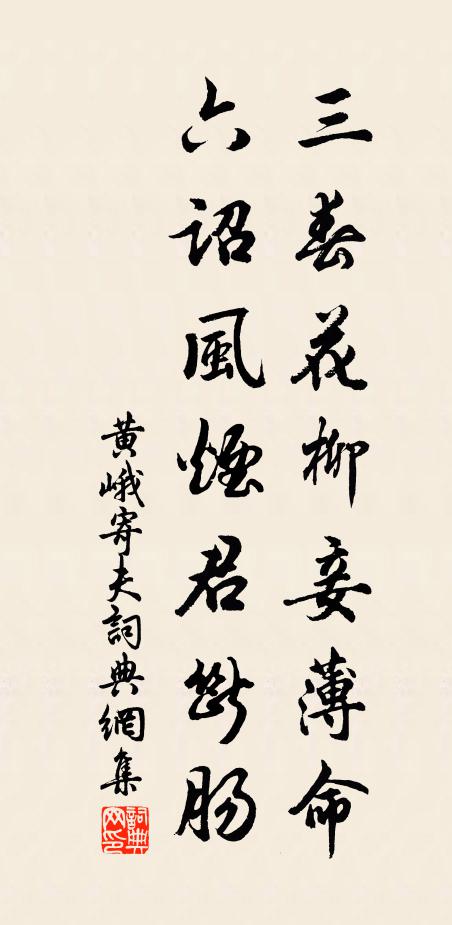 三春花柳妾薄命
六詔風煙君斷腸
黃峨寄夫詞典網集
詞典網印